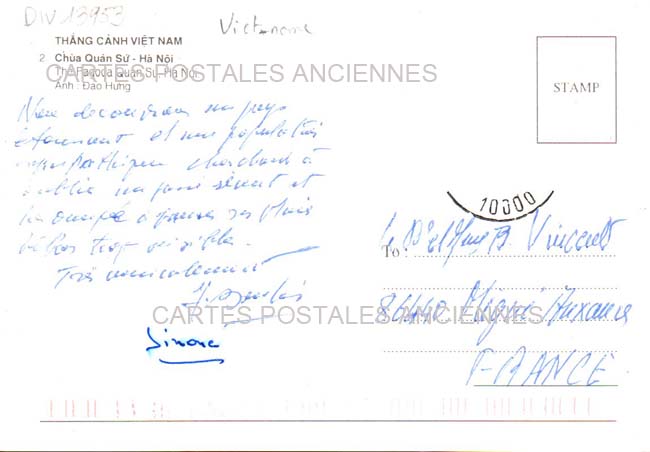 DIV 13953
Vietname
THẮNG CẢNH VIỆT NAM
2 Chùa Quán Sứ - Hà Nội
The Pagoda Quán Sứ - Hà Nội
Ảnh : Đào Hưng
CARTES POSTALES ANCIENNES
STAMP
Nous découvrons un pays
étonnant et une population
sympathique cherchant à
oublier un passé récent et
à ses
trop visibles.
Très amicalement
Simone
10000
To : Mme B. Vincent
CARTES POSTALES ANCIENNES
86440 Migné Auxances
FRANCE